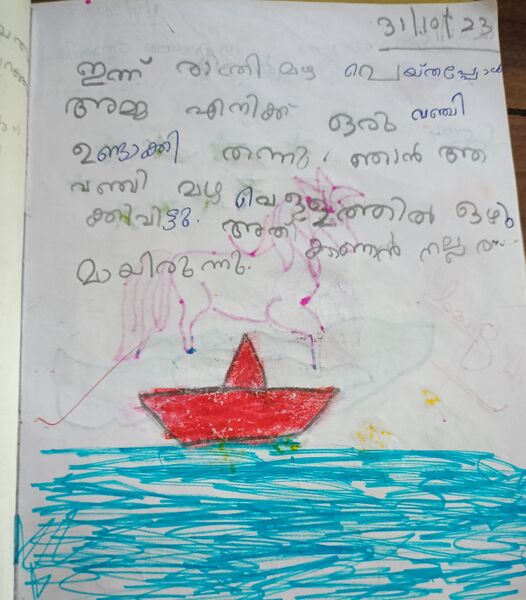 31/10/23
ഇന്ന് രാത്രി മഴ പെയ്തപ്പോൾ
അമ്മ എനിക്ക് ഒരു വഞ്ചി
ഉണ്ടാക്കി തന്നു. ഞാൻ ആ
വഞ്ചി മഴ വെള്ളത്തിൽ ഒഴു
ക്കിവിട്ടു. അത് കാണാൻ നല്ല
മായിരുന്നു.